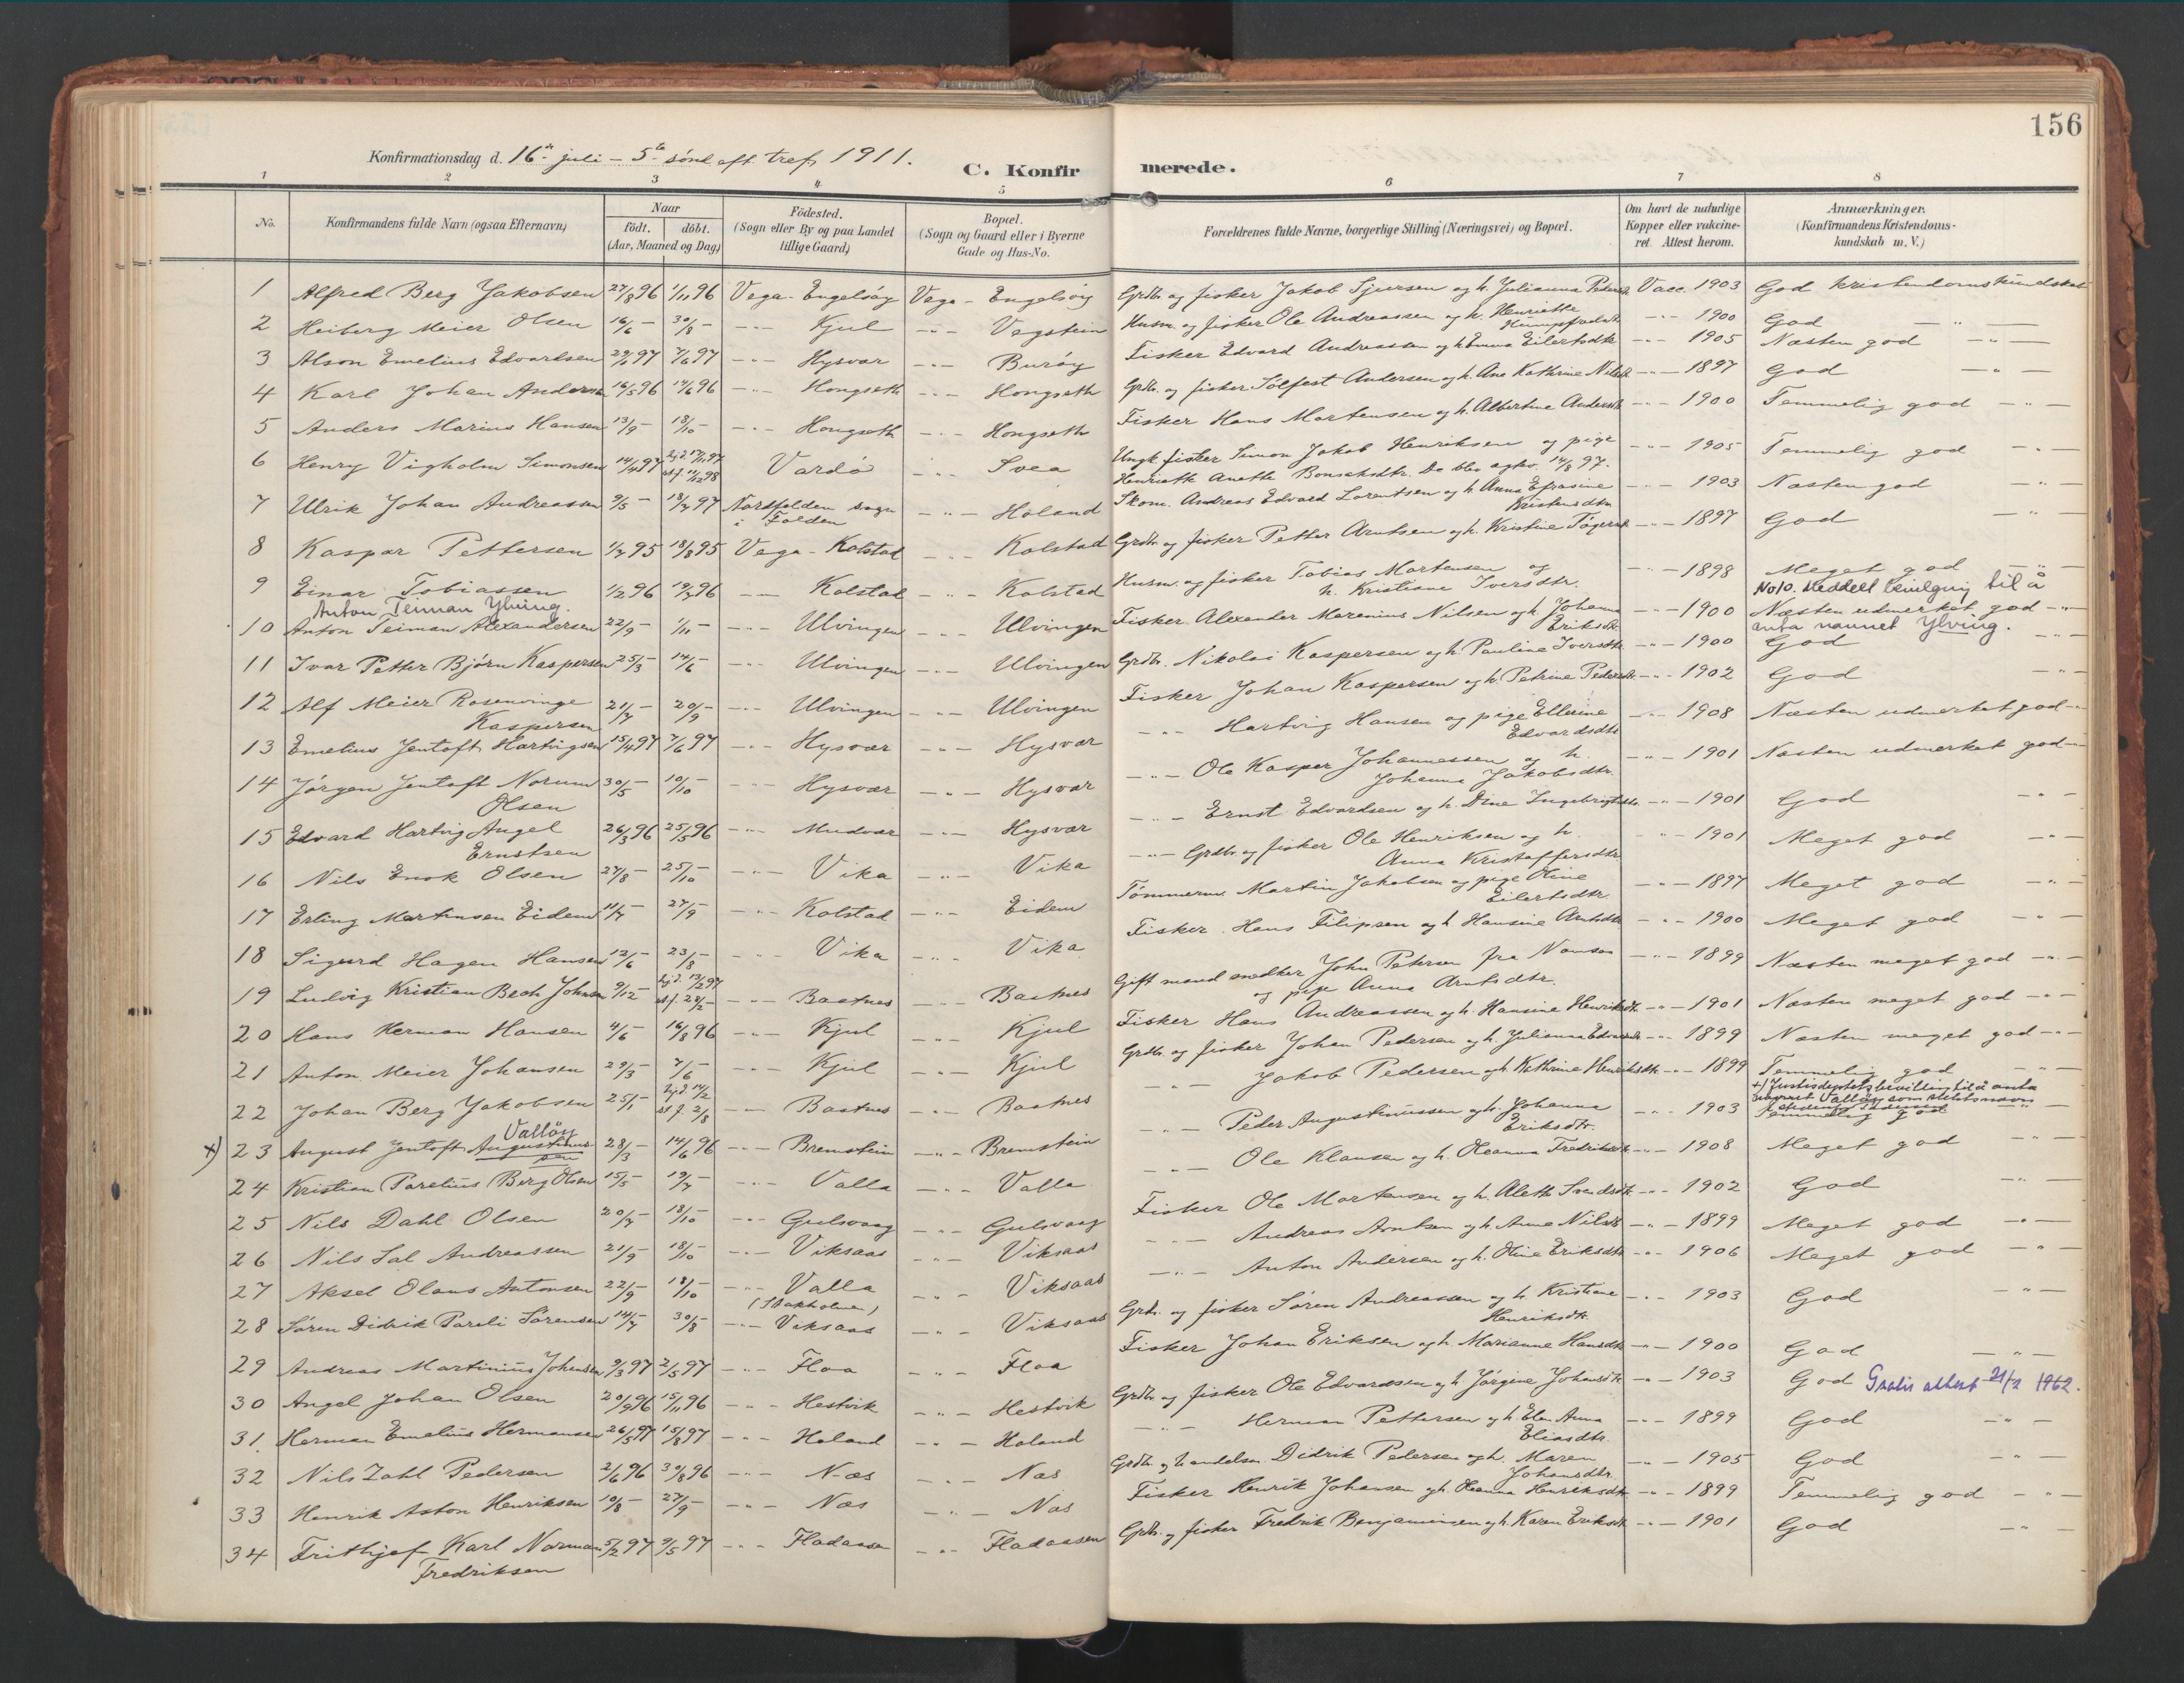 156
Konfirmationsdag d. 16de juli – 5te sönd. eft. tref. 1911.
C. Konfirmerede.
1 2 3 4 5 6 7 8
No. Konfirmandens fulde Navn (ogsaa Efternavn) Naar födt. döbt. (Aar, Maaned og Dag) Födested. (Sogn eller By og paa Landet tillige Gaard) Bopæl. (Sogn og Gaard eller i Byerne Gade og Hus-No. Forældrenes fulde Navne, borgerlige Stilling (Næringsvei) og Bopæl. Om havt de naturlige Kopper eller vakcineret. Attest herom. Anmærkninger. (Konfirmandens Kristendomskundskab m. V.)
1 Alfred Berg Jakobsen 27/8 96 1/11 96 Vega - Engelsöy Vega - Engelsöy Grdbr. og fisker Jakob Sjursen og h. Julianna Pedersdtr. Vacc. 1903 God kristendomskundskab
2 Heiberg Meier Olsen 16/6 – 30/8 – -"- Kjul -"- Vegstein Husm. og fisker Ole Andreassen og h. Henriette -"- 1900 God -"-
3 Alson Emelius Edvardsen 29/1 97 7/6 97 -"- Hysvær -"- Buröy Fisker Edvard Andreassen og h. Emma Eilertsdtr. -"- 1905 Næsten god -"-
4 Karl Johan Andersen 16/5 96 14/6 96 -"- Hongseth -"- Hongseth Grdbr. og fisker Sölfest Andersen og h. Ane Kathrine Nilsdtr. -"- 1897 God -"-
5 Anders Marius Hansen 13/9 – 18/10 – -"- Hongseth -"- Hongseth Fisker Hans Martensen og h. Albertine Andersdtr. -"- 1900 Temmelig god -"-
6 Henry Vigholm Simonsen 14/4 97 hjd. 17/11 97 st. f. 11/12 98 Vardö -"- Svea Ungk. fisker Simon Jakob Henriksen og pige Henriette Anette Bonsaksdtr. De blev agtev. 14/8 97. -"- 1905 Temmelig god -"-
7 Ulrik Johan Andreassen 9/5 – 18/7 97 Nordfolden sogn i Folden -"- Holand Skom. Andreas Edvard Lorentsen og h. Anna Efrasine Kristensdtr. -"- 1903 Næsten god -"-
8 Kaspar Pettersen 1/7 95 18/8 95 Vega - Kolstad -"- Kolstad Grdbr. og fisker Petter Arntsen og h. Kristine -"- 1897 God -"-
9 Einar Tobiassen 1/2 96 19/7 96 -"- Kolstad -"- Kolstad Husm. og fisker Tobias Mortensen og h. Kristiane Iversdtr. -"- 1898 Meget god -"-
Anton Teiman Ylving. No 10. Meddelt bevilgning til å
10 Anton Teiman Alexandersen 22/9 – 1/11 – -"- Ulvingen -"- Ulvingen Fisker Alexander Marenius Nilsen og h. Johanna Eriksdtr. -"- 1900 Næsten udmerket god -"-
anta navnet Ylving.
11 Ivar Petter Björn Kaspersen 25/3 – 14/6 – -"- Ulvingen -"- Ulvingen Grdbr. Nikolai Kaspersen og h. Pauline Iversdtr. -"- 1900 God -"-
12 Alf Meier Rosenvinge Kaspersen 21/7 – 20/9 – -"- Ulvingen -"- Ulvingen Fisker Johan Kaspersen og h. Petrine Pedersdtr. -"- 1902 God -"-
13 Emelius Jentoft Hartvigsen 15/4 97 7/6 97 -"- Hysvær -"- Hysvær -"- Hartvig Hansen og pige Ellerine Edvardsdtr. -"- 1908 Næsten udmerket god -"-
14 Jörgen Jentoft Norum Olsen 30/5 – 10/10 – -"- Hysvær -"- Hysvær -"- Ole Kasper Johannessen og h. Johanna Jakobsdtr. -"- 1901 Næsten udmerket god -"-
15 Edvard Hartvig Angel Ernstsen 26/3 96 25/5 96 -"- Mudvær -"- Hysvær -"- Ernst Edvardsen og h. Dine Ingebrigtsdtr. -"- 1901 God -"-
16 Nils Enok Olsen 27/8 – 25/10 – -"- Vika -"- Vika -"- Grdbr. og fisker Ole Henriksen og h. Anna Kristoffersdtr. -"- 1901 Meget god -"-
17 Erling Martinsen Eidem 11/7 – 27/9 – -"- Kolstad -"- Eidem Tömmerm. Martin Jakobsen og pige Oline Eilertsdtr. -"- 1897 Meget god -"-
18 Sigurd Hagen Hansen 12/6 – 23/8 – -"- Vika -"- Vika Fisker Hans Filipsen og h. Hansine Arntsdtr. -"- 1900 Meget god -"-
19 Ludvig Kristian Bech Johnsen 9/12 – hjd. 13/2 97 st. f. 28/2 – -"- Baatnes -"- Baatnes Gift mand snedker John Petersen fra Namsos og pige Anna Arntsdtr. -"- 1899 Næsten meget god -"-
20 Hans Herman Hansen 4/6 – 16/8 96 -"- Kjul -"- Kjul Fisker Hans Andreassen og h. Hansine Henriksdtr. -"- 1901 Næsten meget god -"-
21 Anton Meier Johansen 29/3 – 7/6 – -"- Kjul -"- Kjul Grdbr. og fisker Johan Pedersen og h. Julianna Edvardsdtr. -"- 1899 Næsten meget god -"-
22 Johan Berg Jakobsen 25/1 – hjd. 14/2 st. f. 2/8 -"- Baatnes -"- Baatnes -"- Jakob Pedersen og h. Kathrine Henriksdtr. -"- 1899 Temmelig god -"-
+) Justisdeptets bevilling til å anta navnet Vallöy som slektsnavn
Vallöy
x) 23 August Jentoft Augustinussen 28/3 – 14/6 96 -"- Bremstein -"- Bremstein -"- Peder Augustinussen og h. Johanna Eriksdtr. -"- 1903 Temmelig god -"-
24 Kristian Parelius Berg Olsen 15/5 – 19/7 – -"- Valla -"- Valla -"- Ole Klausen og h. Oleanna Fredriksdtr. -"- 1908 Meget god -"-
25 Nils Dahl Olsen 20/7 – 18/10 – -"- Gulsvaag -"- Gulsvaag Fisker Ole Martensen og h. Aleth Svendsdtr. -"- 1902 God -"-
26 Nils Sal Andreassen 21/9 – 18/10 – -"- Viksaas -"- Viksaas -"- Andreas Arntsen og h. Anna Nilsdtr. -"- 1899 Meget god -"-
27 Aksel Olaus Antonsen 22/9 – 18/10 – -"- Valla (Stokholmen) -"- Viksaas -"- Anton Andersen og h. Oline Eriksdtr. -"- 1906 Meget god -"-
28 Sören Didrik Pareli Sörensen 14/7 – 30/8 – -"- Viksaas -"- Viksaas Grdbr. og fisker Sören Andreassen og h. Kristiane Henriksdtr. -"- 1903 God -"-
29 Andreas Martinius Johansen 9/3 97 2/5 97 -"- Floa -"- Floa Fisker Johan Eriksen og h. Marianne Hansdtr. -"- 1900 God -"-
30 Angel Johan Olsen 20/9 96 15/11 96 -"- Hestvik -"- Hestvik Grdbr. og fisker Ole Edvardsen og h. Jörgine Johansdtr. -"- 1903 God Gratis attest 21/2 1962.
31. Herman Emelius Hermansen 26/5 97 15/8 97 -"- Holand -"- Holand -"- Herman Pettersen og h. Elen Anna Eliasdtr. -"- 1899 God -"-
32 Nils Zahl Pedersen 2/6 96 30/8 96 -"- Næs -"- Næs Grdbr. og handelsm. Didrik Pedersen og h. Maren Johansdtr. -"- 1905 God -"-
33 Henrik Aston Henriksen 10/8 – 27/9 – -"- Næs -"- Næs Fisker Henrik Johansen og h. Oleanna Henriksdtr. -"- 1899 Temmelig god -"-
34 Frithjof Karl Norman Fredriksen 5/2 97 9/5 97 -"- Fladaasen -"- Fladaasen Grdbr. og fisker Fredrik Benjaminsen og h. Karen Eriksdtr. -"- 1901 God -"-